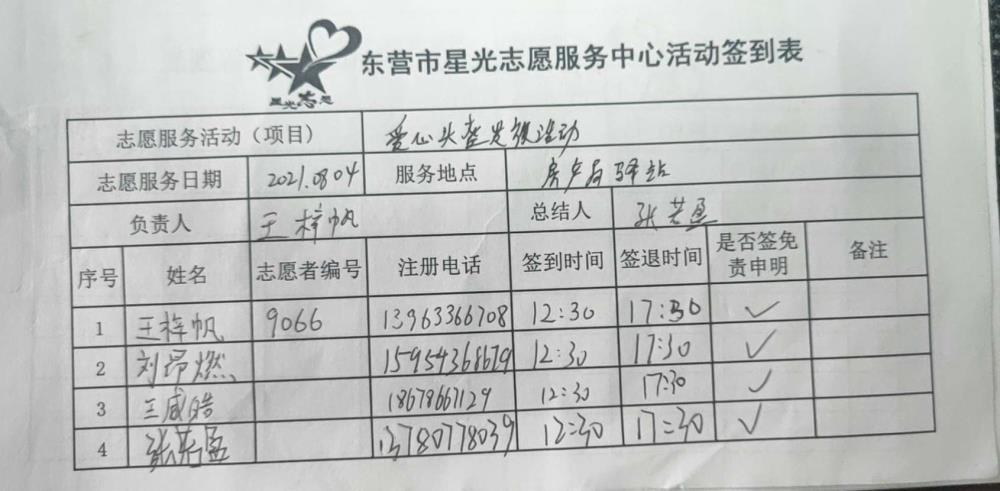 星光志愿
东营市星光志愿服务中心活动签到表
志愿服务活动（项目） 爱心头盔发放活动
志愿服务日期 2021.0804 服务地点 房产局驿站
负责人 王梓帆 总结人 张芸盈
序号 姓名 志愿者编号 注册电话 签到时间 签退时间 是否签免责申明 备注
1 王梓帆 9066 13963366708 12:30 17:30 ✓
2 刘昂燃 15954368679 12:30 17:30 ✓
3 王威皓 18678667129 12:30 17:30 ✓
4 张芸盈 13780778039 12:30 17:30 ✓